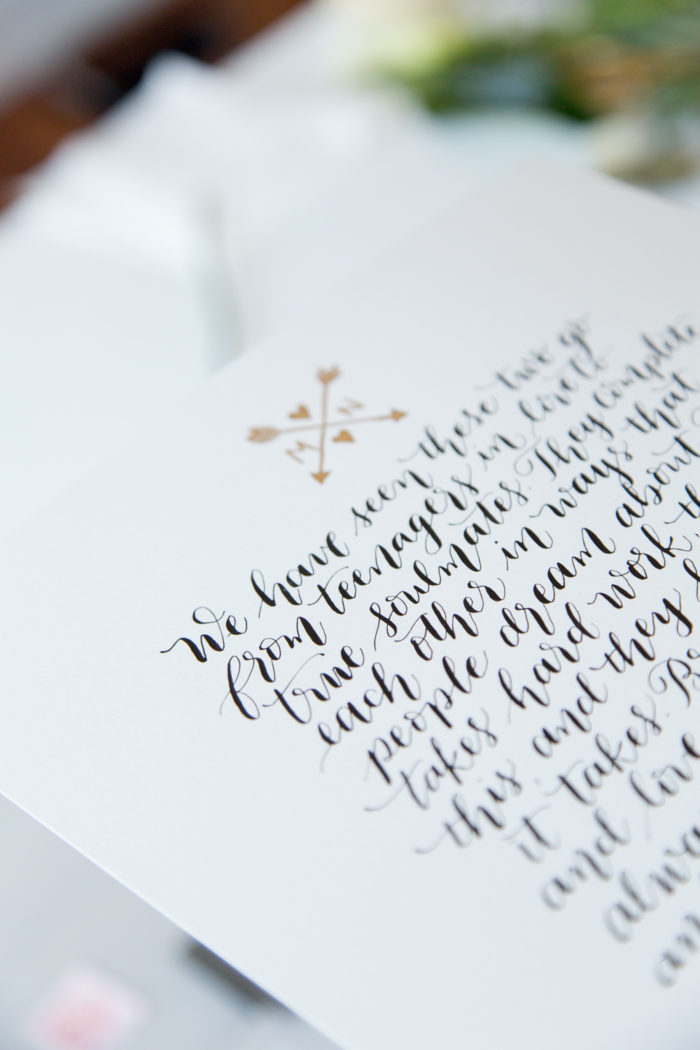 M N
We have seen these two go
from teenagers in love to
true soulmates. They complete
each other in ways that
people dream about
takes hard work,
this and they
it takes.
and love
alwa
an